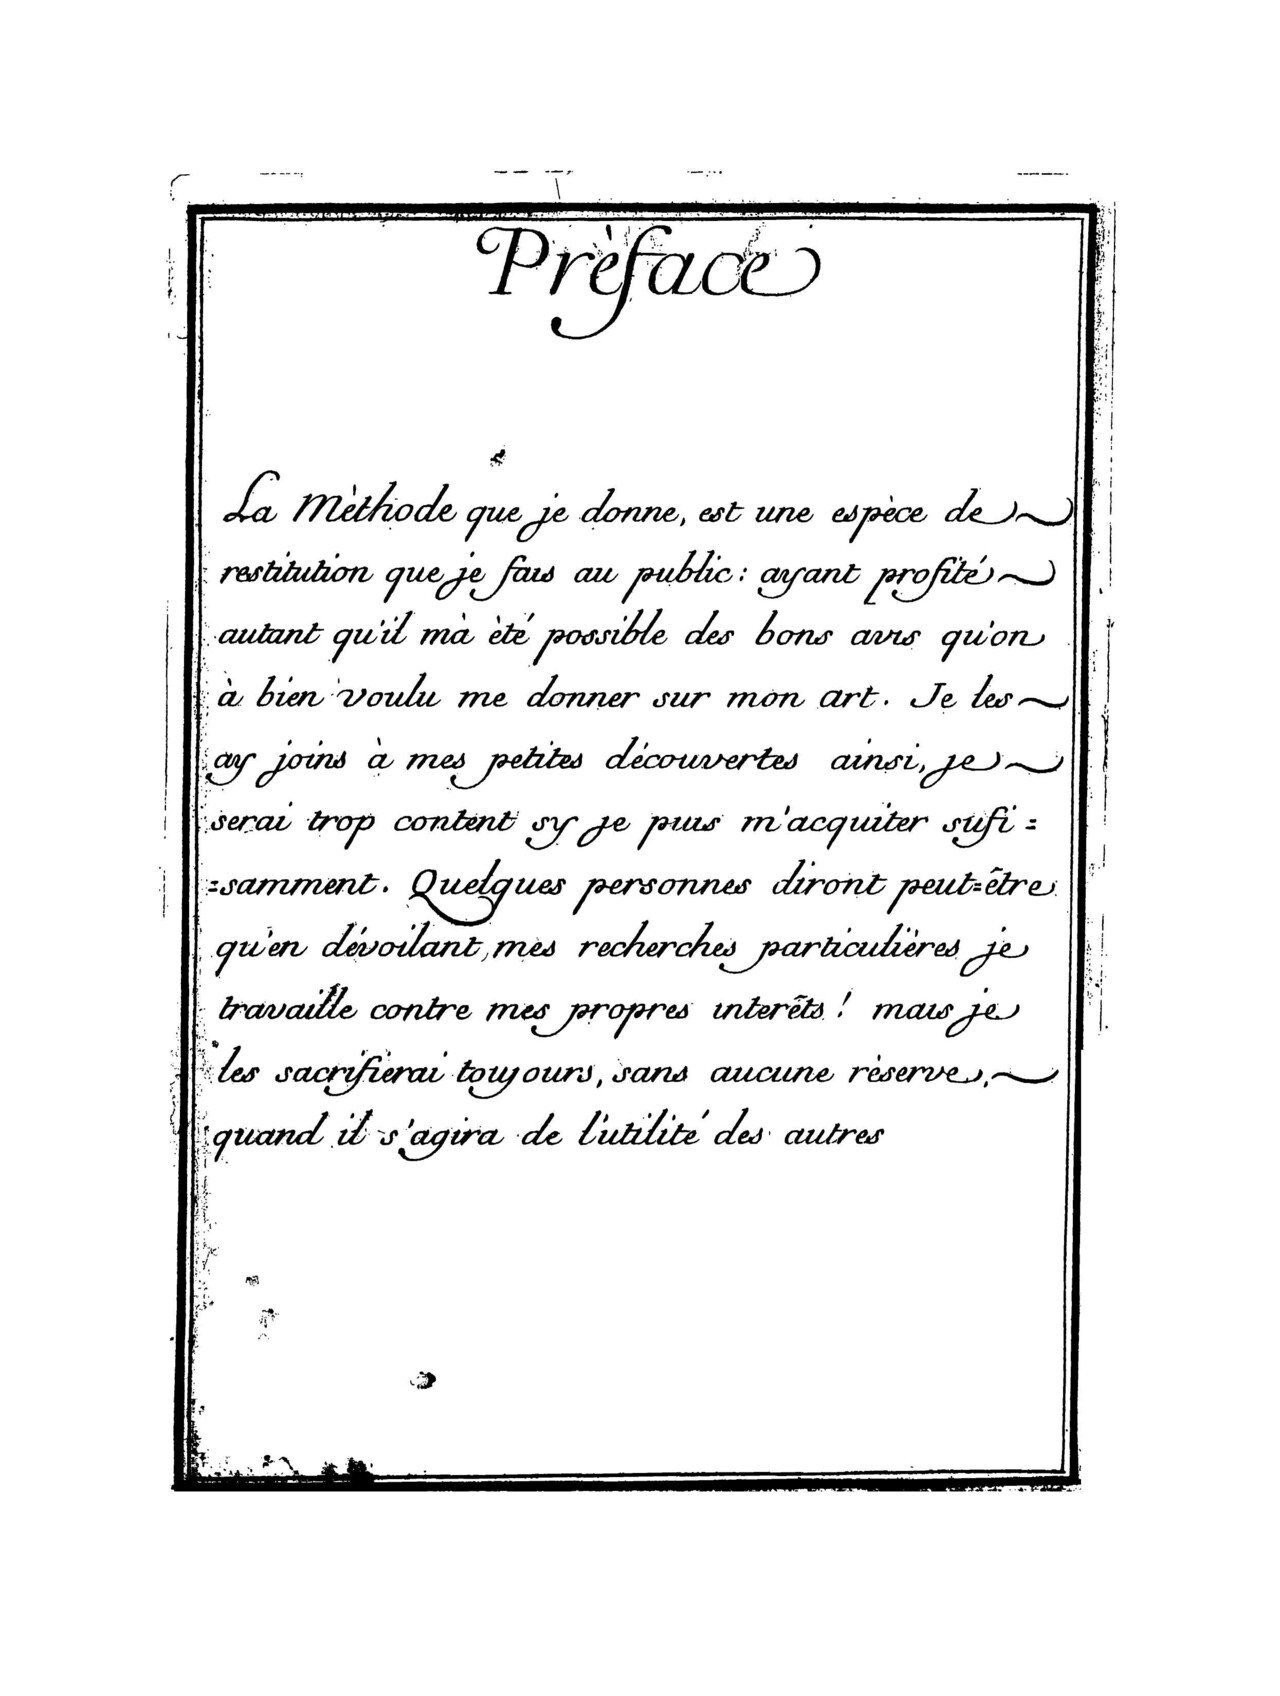 Prèface
La Mèthode que je donne, est une espèce de
restitution que je fais au public: ayant profité
autant qu'il mà èté possible des bons avis qu'on
à bien voulu me donner sur mon art. Je les
ay joins à mes petites découvertes ainsi, je
serai trop content sy je puis m'acquiter sufi=
=samment. Quelques personnes diront peut=être
qu'en dévoilant, mes recherches particulières je
travaille contre mes propres interêts! mais je
les sacrifierai toujours, sans aucune rèserve,
quand il s'agira de l'utilité des autres